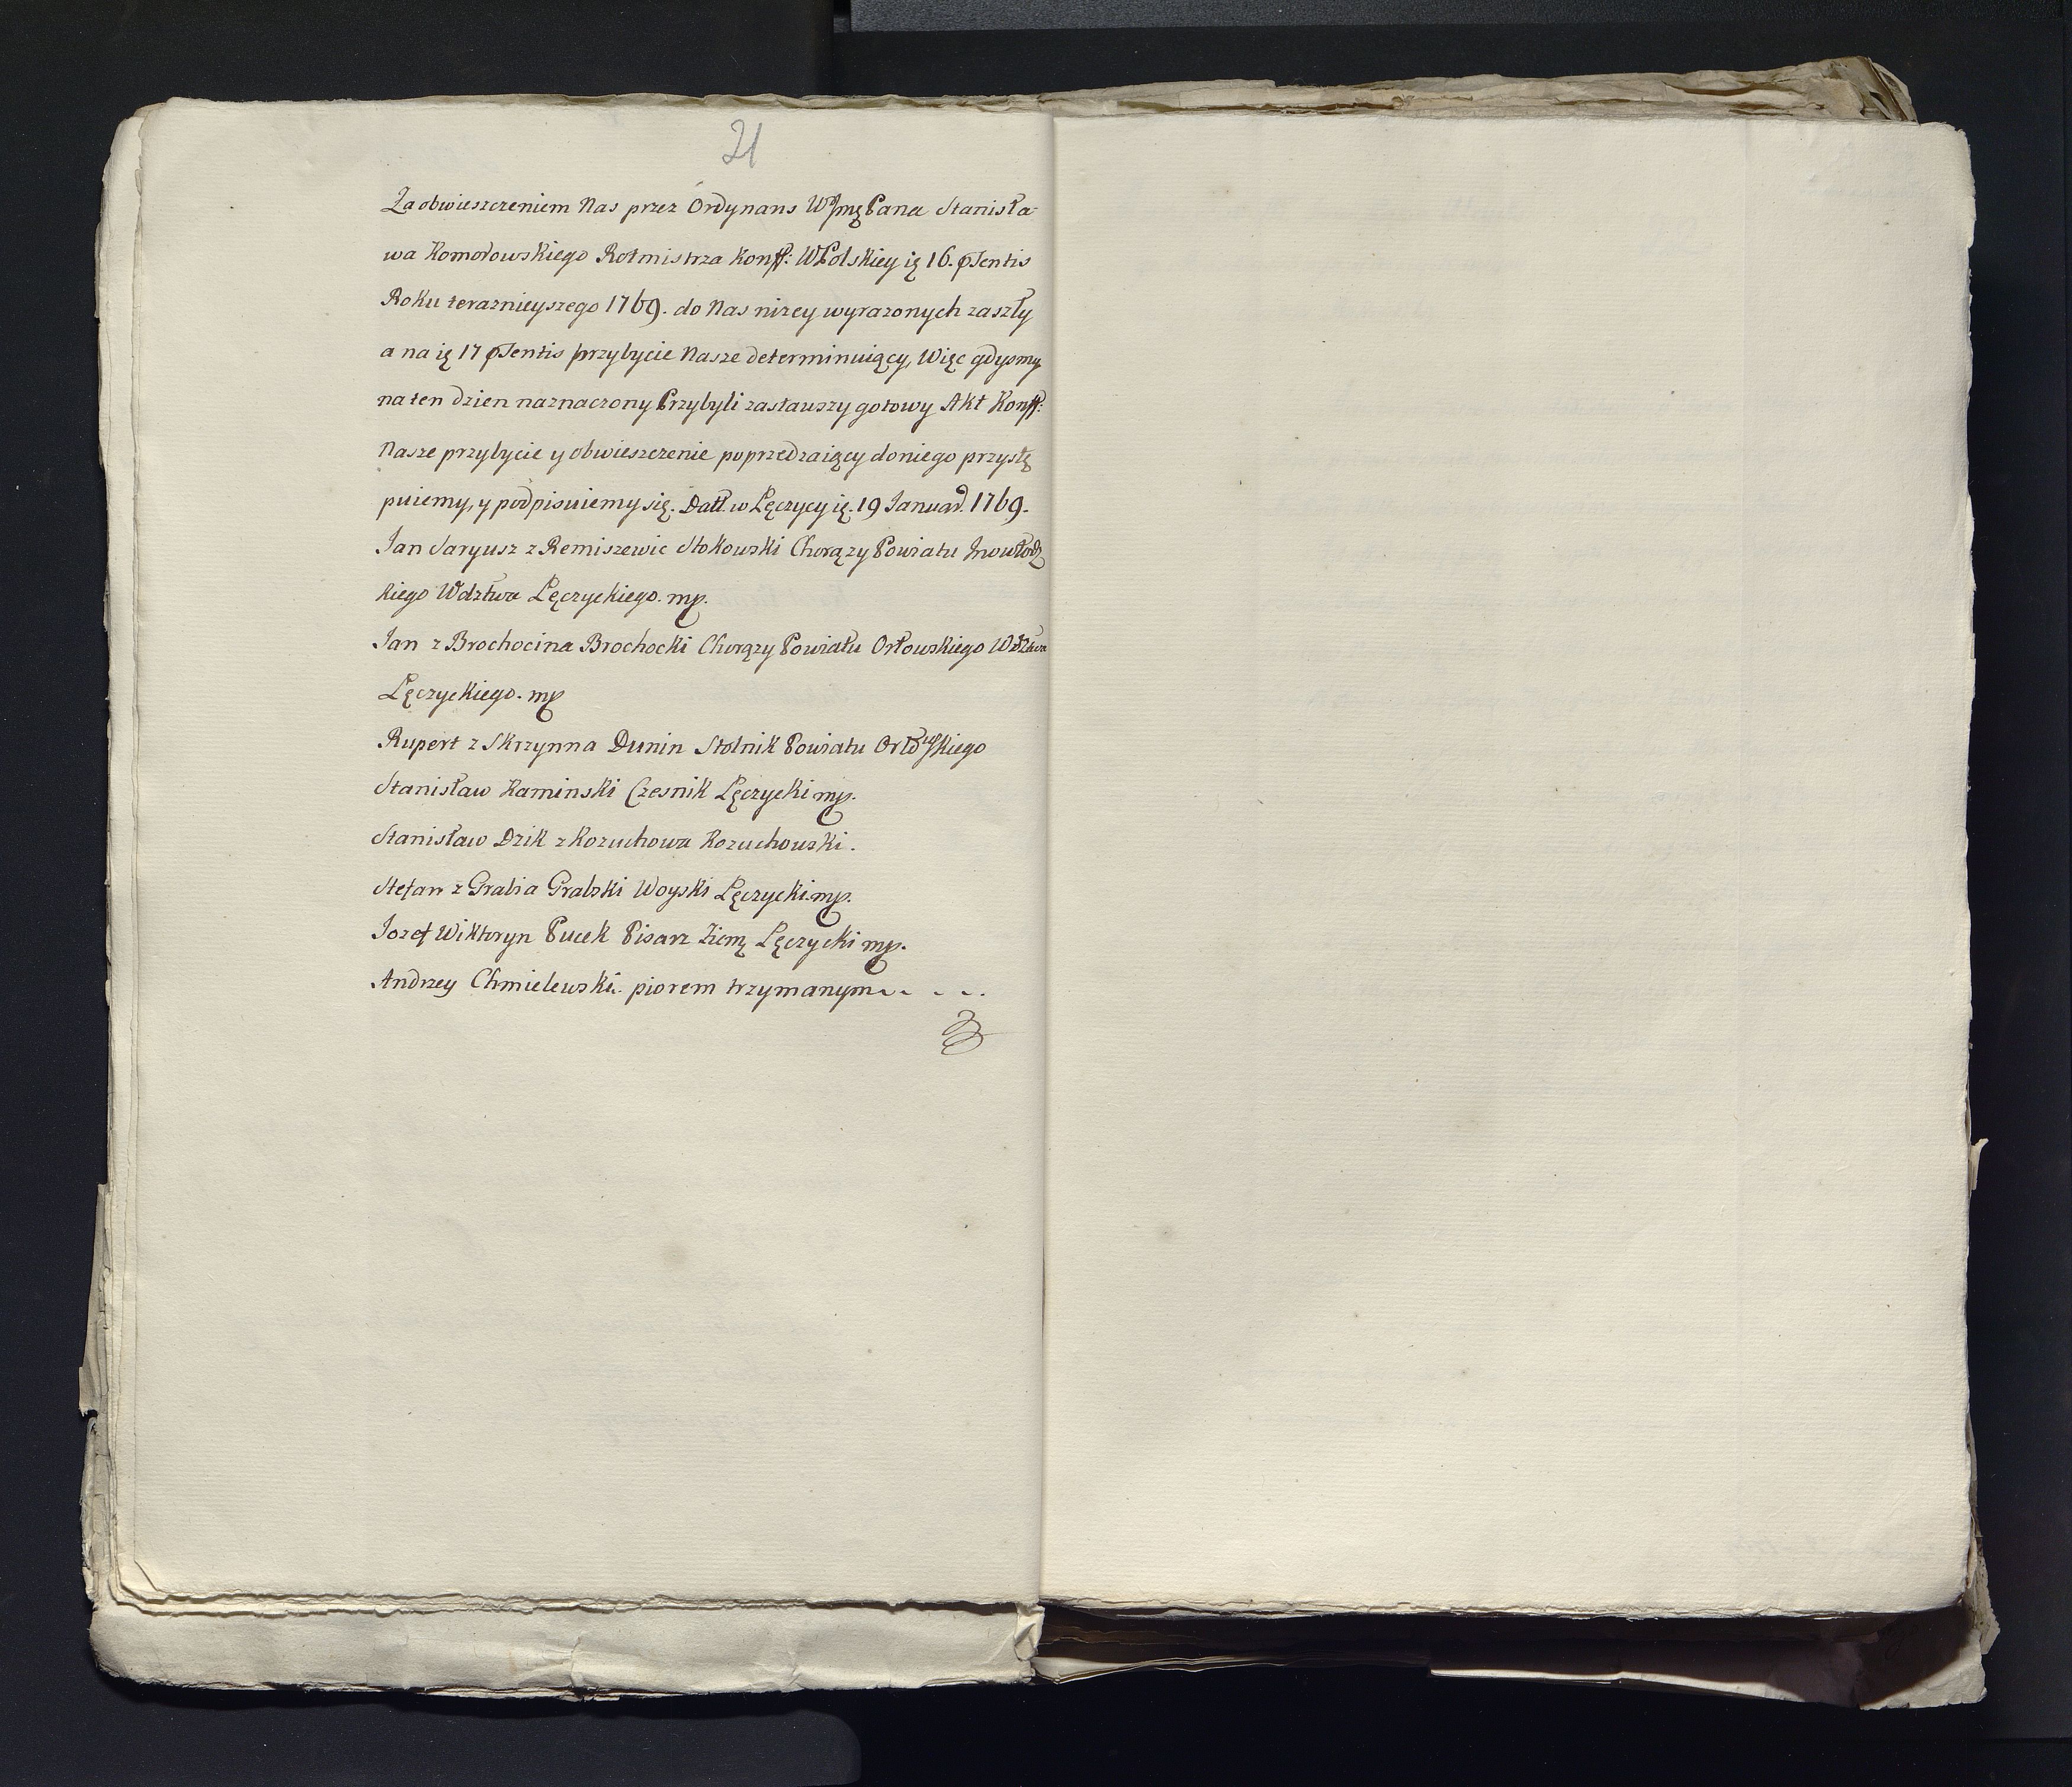 21
Za obwieszczeniem Nas przez Ordynans WJmę Pana Stanisła-
wa Komorowskiego Rotmistrza Konff: WPolskiey ię 16. pSentis
Roku teraznieyszego 1769. do Nas nizey wyrazonych zaszły
a na ię 17 pSentis przybycie Nasze determinuiący, Więc gdysmy
na ten dzien naznaczony Przybyli zastauszy gotowy Akt Konff:
Nasze przybycie y obwieszczenie poprzedzaiący doniego przystę
puiemy, y podpisuiemy się. Datt. w Łęczycy ię. 19 Januar. 1769.
Jan Saryusz z Remiszewic Stokowski Chorązy Powiatu Inowłodz
kiego Wdztwa Łęczyckiego. mp.
Jan z Brochocina Brochocki Chorązy Powiatu Orłowskiego Wdztwa
Łęczyckiego. mp
Rupert z Skrzynna Dunin Stolnik Powiatu Orłowskiego
Stanisław Kaminski Czesnik Łęczycki mp.
Stanisław Dzik z Kozuchowa Kozuchowski.
Stefan z Grabia Grabski Woyski Łęczycki mp.
Jozef Wiktoryn Pucek Pisarz Ziemę Łęczycki mp.
Andrzey Chmielewski. piorem trzymanym